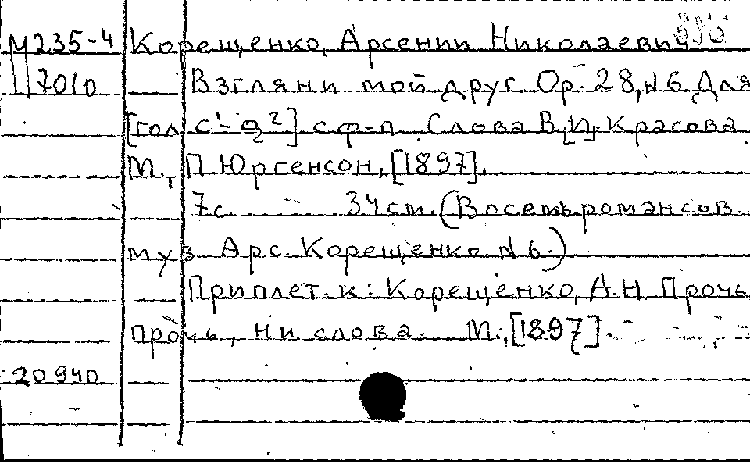 М235-4 Корещенко, Арсений Николаевич
17010 Взгляни мой друг. Op. 28, №6. Для
[гол. c¹-g²] с ф-п. Слова В.[И]. Красова.
М., П. Юргенсон, [1897].
7с. 34см. (Восемь романсов
муз. Арс. Корещенко №6.)
Приплет. к: Корещенко, А.Н. Прочь,
прочь, ни слова. М., [1897].
20940